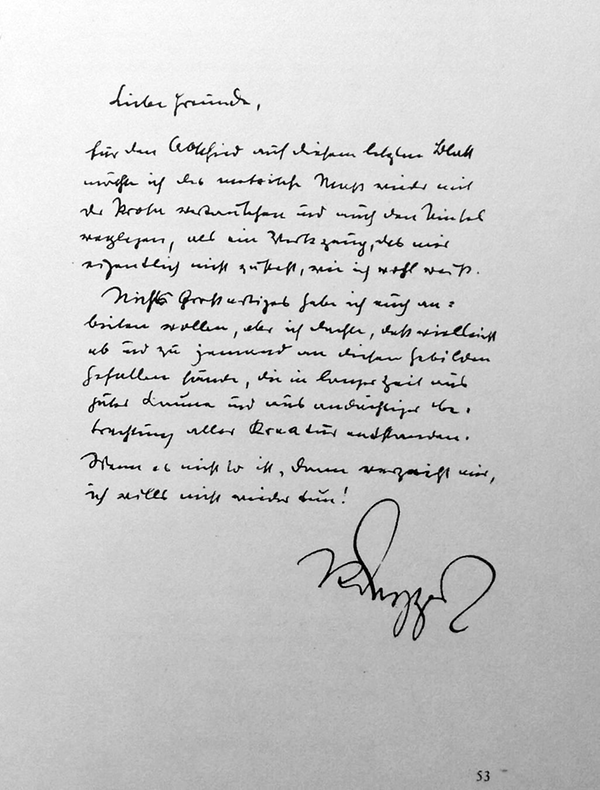 Liebe Freunde,
für den Abschied auf diesem letzten Blatt
möchte ich das metrische Mass wieder mit
der Prosa vertauschen und auch den Pinsel
weglegen, als ein Werkzeug, das mir
eigentlich nicht zusteht, wie ich wohl weiß.
Nichts Großartiges habe ich euch an=
bieten wollen, aber ich dachte, daß vielleicht
ab und zu jemand an diesen Gebilden
Gefallen fände, die in langer Zeit aus
guter Laune und aus andächtiger Be=
trachtung aller Kreatur entstanden.
Wenn es nicht so ist, dann verzeiht mir,
ich wills nicht wieder tun!
53